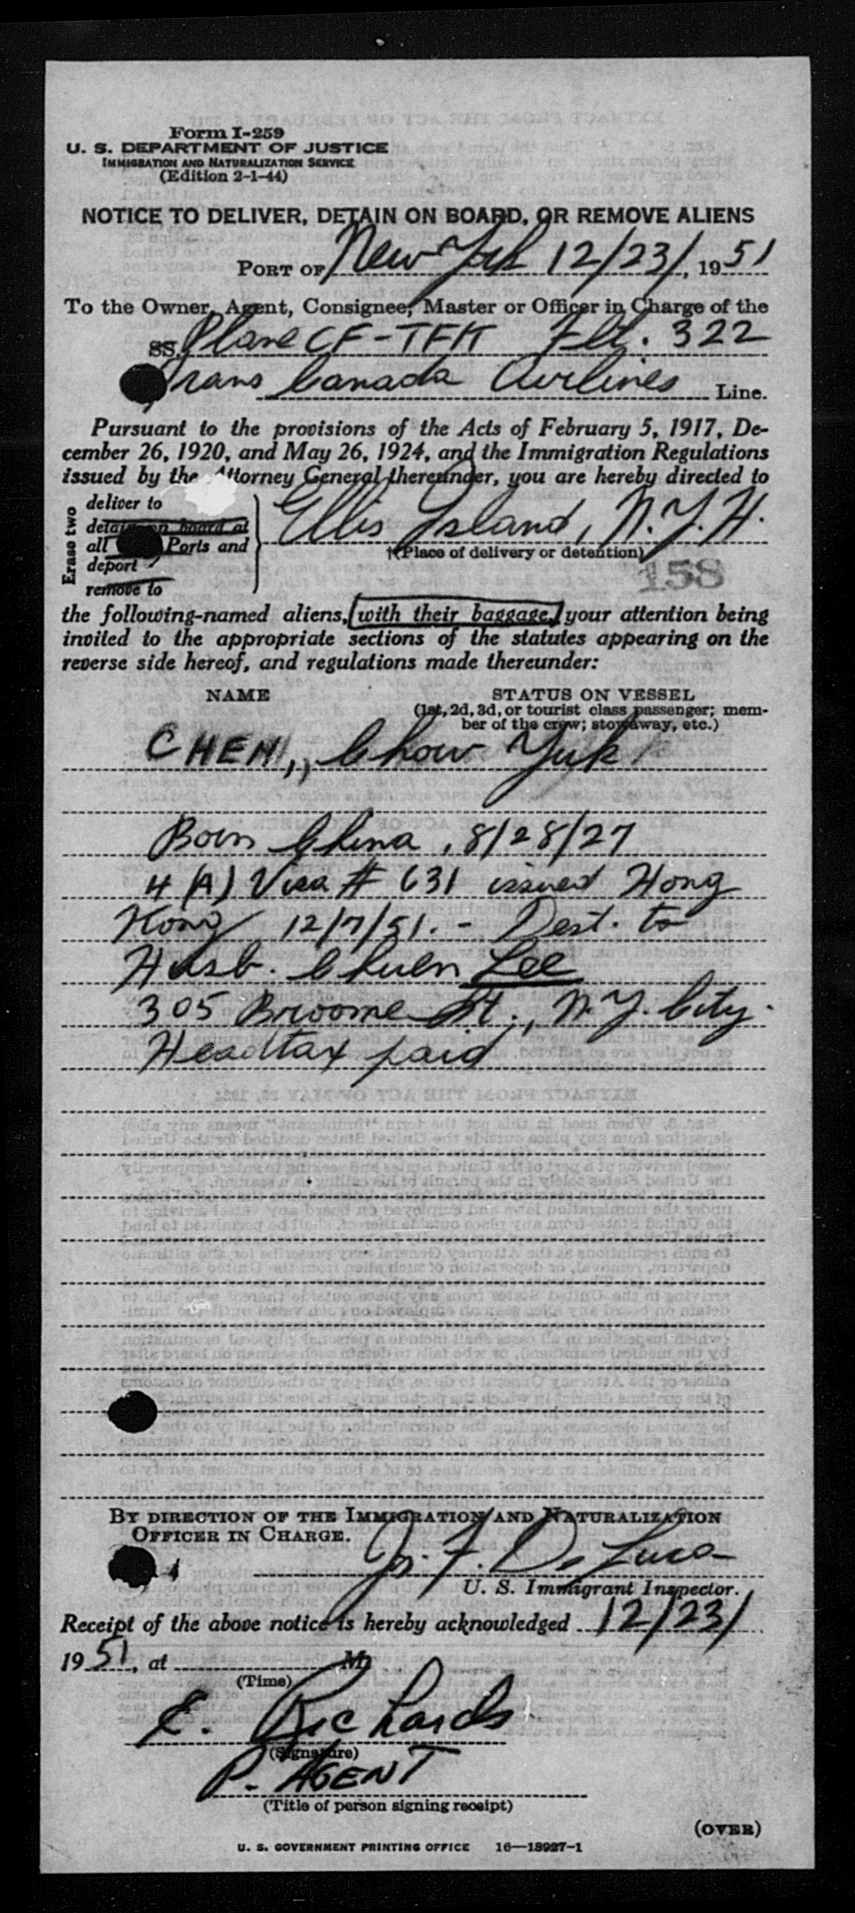 Form I-259
U. S. DEPARTMENT OF JUSTICE
IMMIGRATION AND NATURALIZATION SERVICE
(Edition 2-1-44)
NOTICE TO DELIVER, DETAIN ON BOARD, OR REMOVE ALIENS
PORT OF New York 12/23/, 1951
To the Owner, Agent, Consignee, Master or Officer in Charge of the
SS. Plane CF-TFK Flt. 322
Trans Canada Airlines Line.
Pursuant to the provisions of the Acts of February 5, 1917, De-
cember 26, 1920, and May 26, 1924, and the Immigration Regulations
issued by the Attorney General thereunder, you are hereby directed to
Erase two
deliver to
detain on board at
all Ports and
deport
remove to
Ellis Island, N.Y.H.
†(Place of delivery or detention)
158
the following-named aliens, with their baggage, your attention being
invited to the appropriate sections of the statutes appearing on the
reverse side hereof, and regulations made thereunder:
NAME STATUS ON VESSEL
(1st, 2d, 3d, or tourist class passenger; mem-
ber of the crew; stowaway, etc.)
CHEN, Chow Yuk
Born China, 8/28/27
4 (A) Visa # 631 issued Hong
Kong 12/7/51. - Dest. to
Husb. Chuen Lee
305 Broome St., N.Y. City.
Headtax paid
BY DIRECTION OF THE IMMIGRATION AND NATURALIZATION
OFFICER IN CHARGE.
F. De Luca
U. S. Immigrant Inspector.
Receipt of the above notice is hereby acknowledged 12/23/
1951, at M.
(Time)
E. Richards
(Signature)
P. AGENT
(Title of person signing receipt)
(OVER)
U. S. GOVERNMENT PRINTING OFFICE 16—13927-1